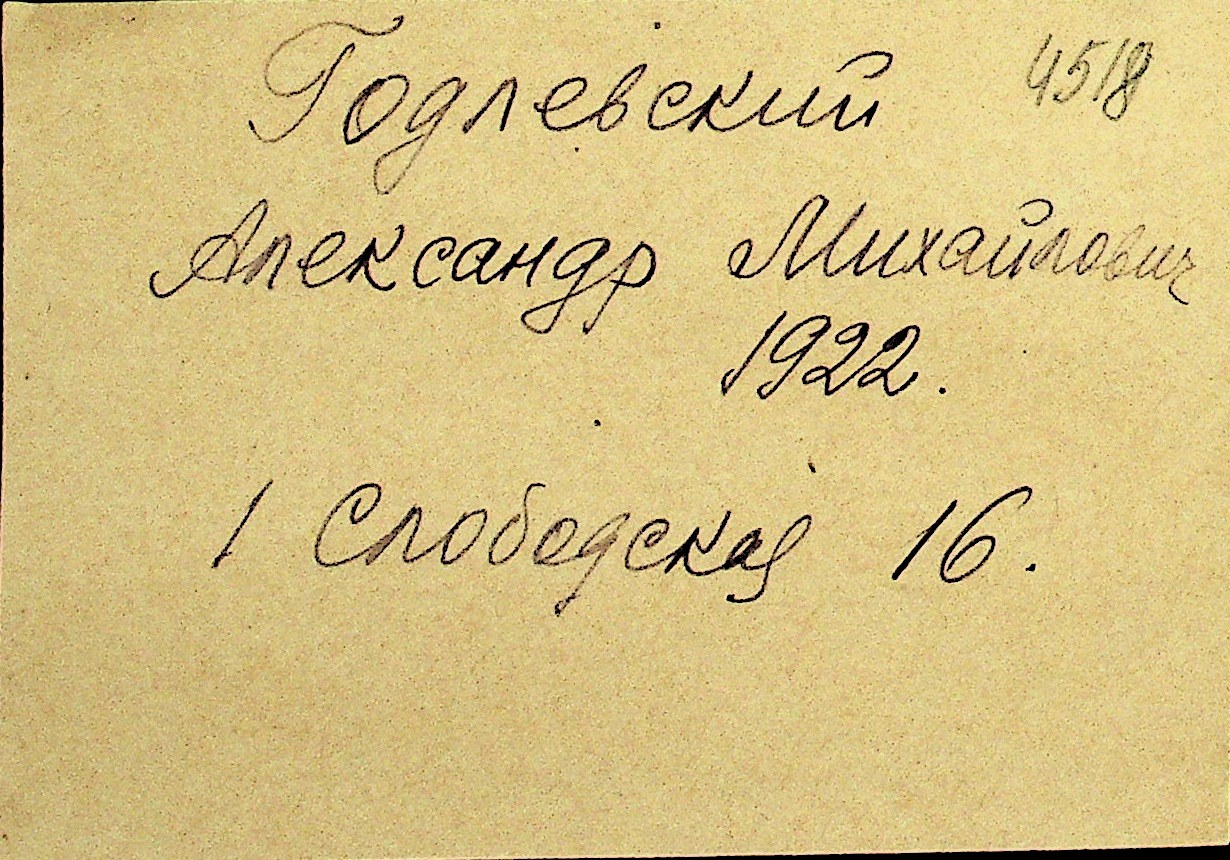 Годлевский 4518
Александр Михайлович
1922.
1 Слободская 16.